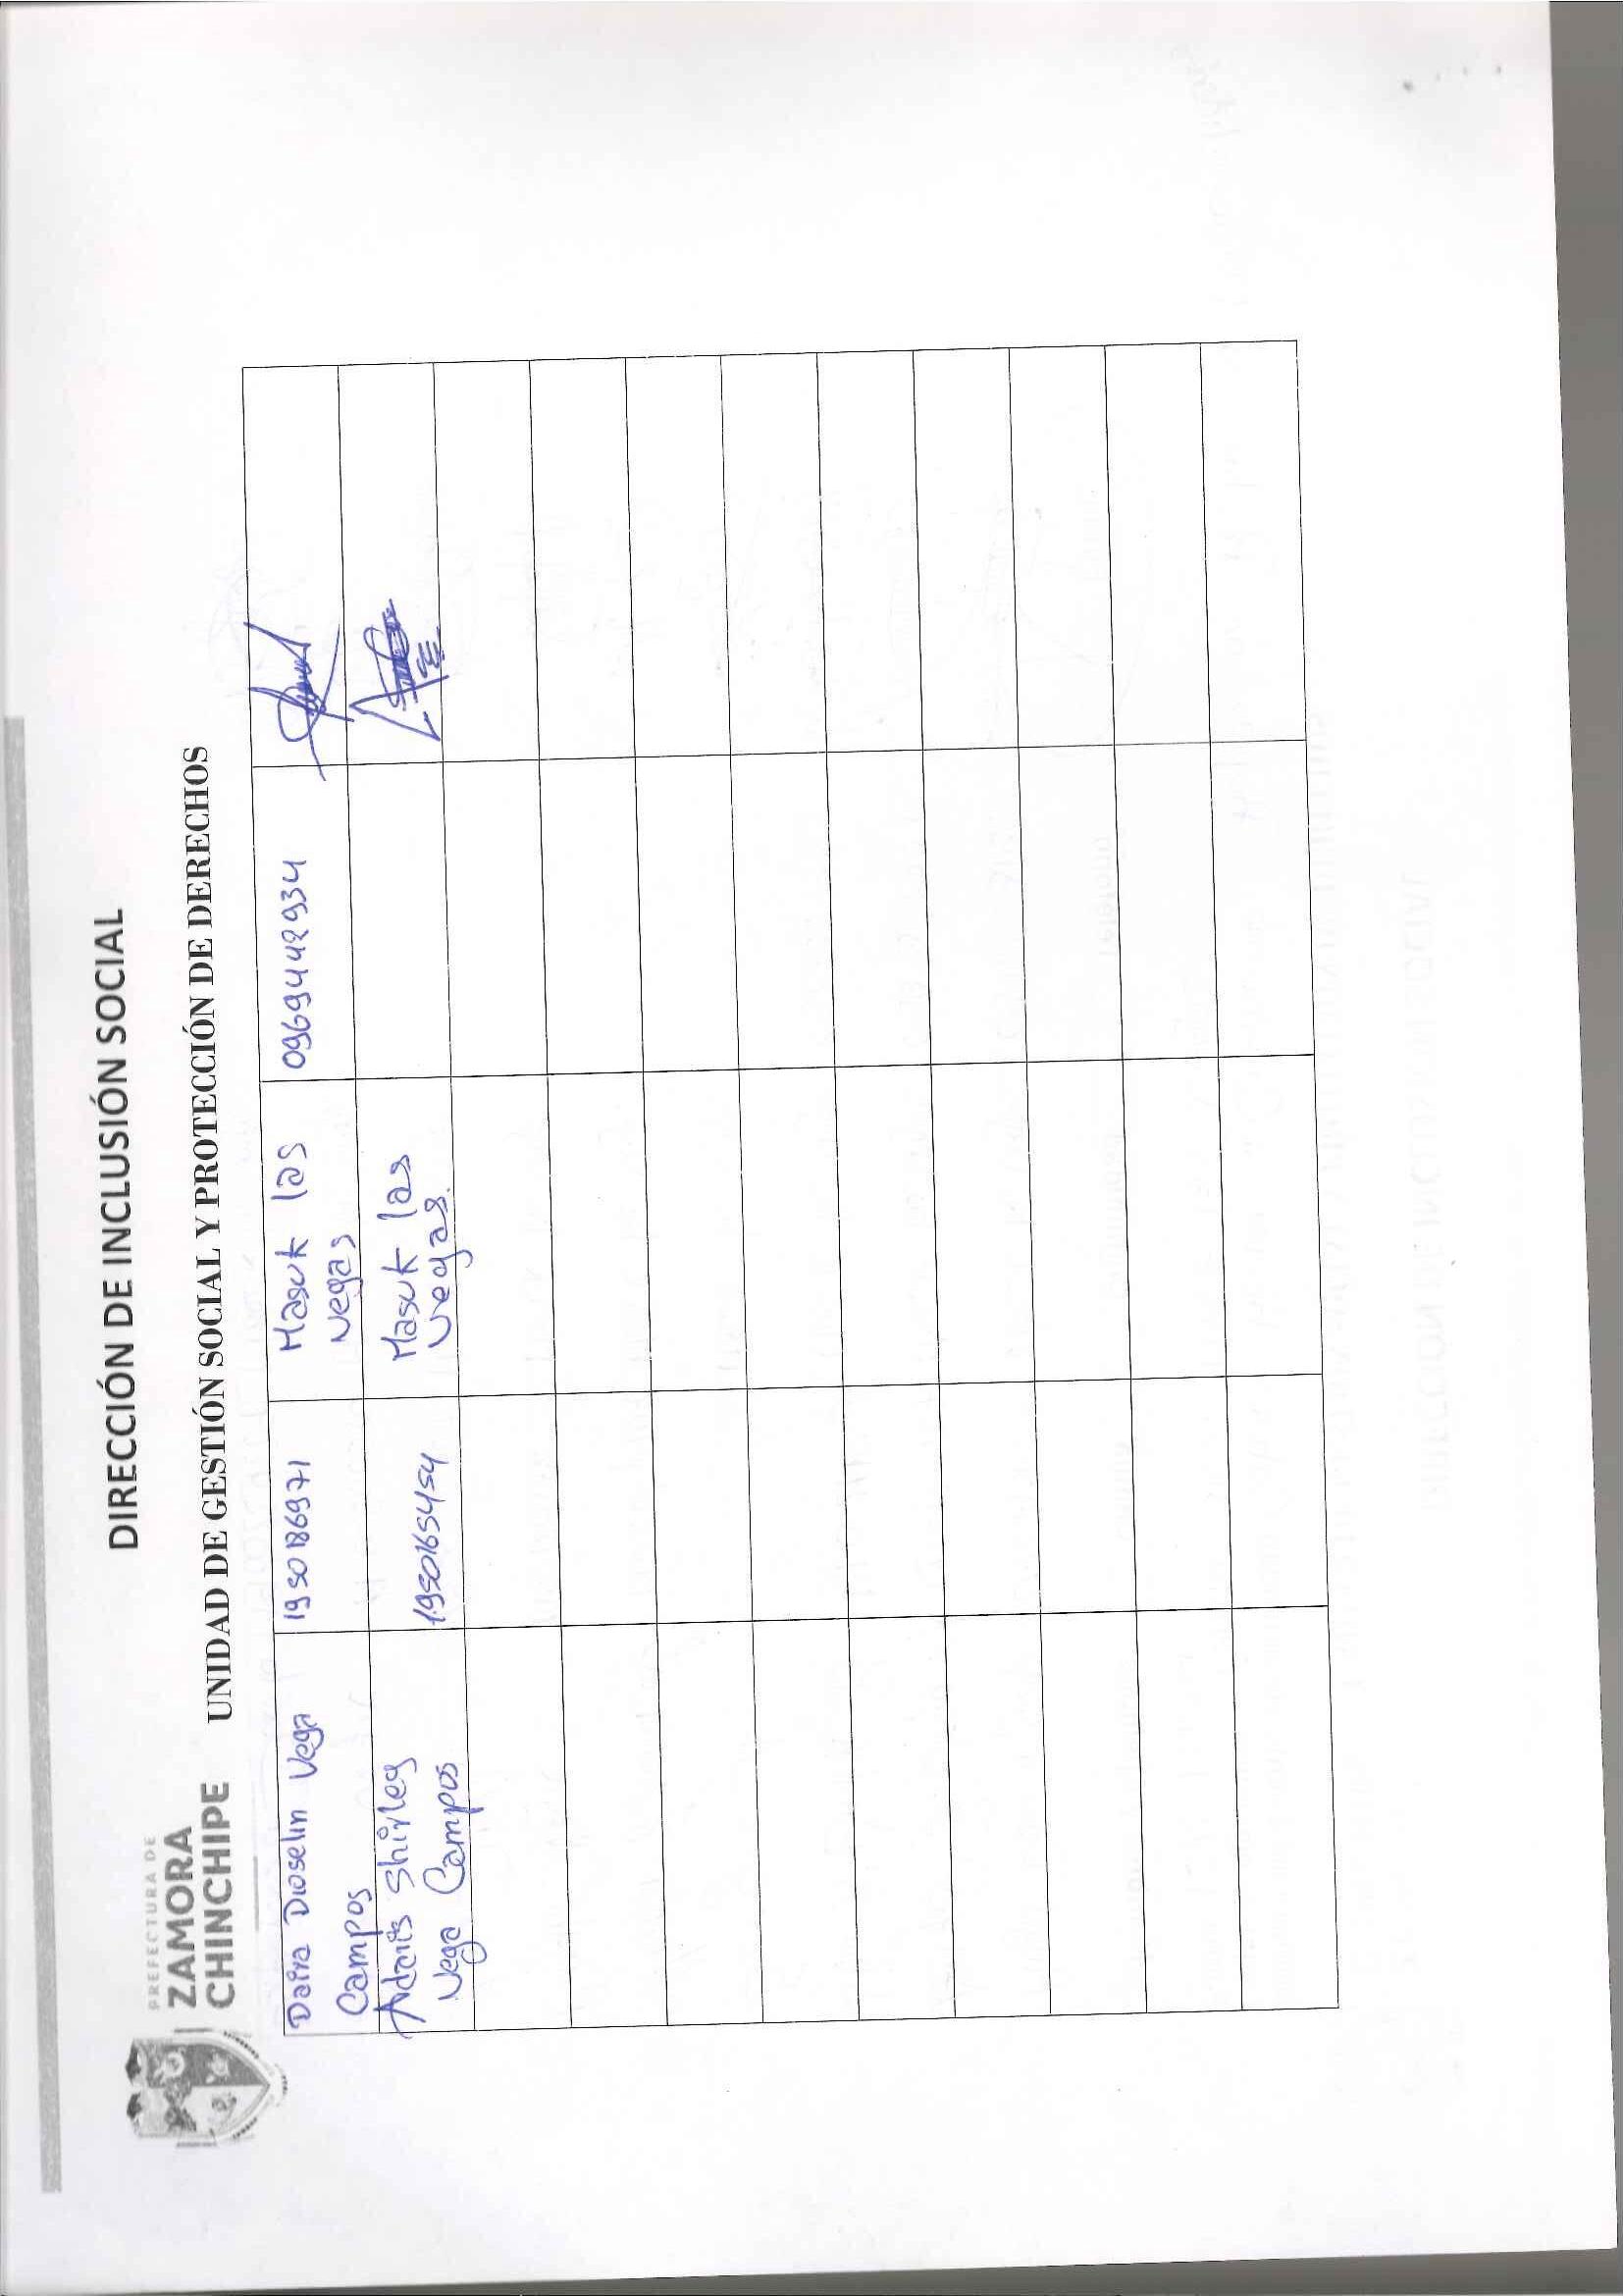 DIRECCIÓN DE INCLUSIÓN SOCIAL
PREFECTURA DE
ZAMORA
CHINCHIPE
UNIDAD DE GESTIÓN SOCIAL Y PROTECCIÓN DE DERECHOS
Daira Dioselin Vega
Campos
1950186971
Masuk las
vegas
0969442934
Adaris Shirley
Vega Campos
1950165454
Masuk las
vegas.